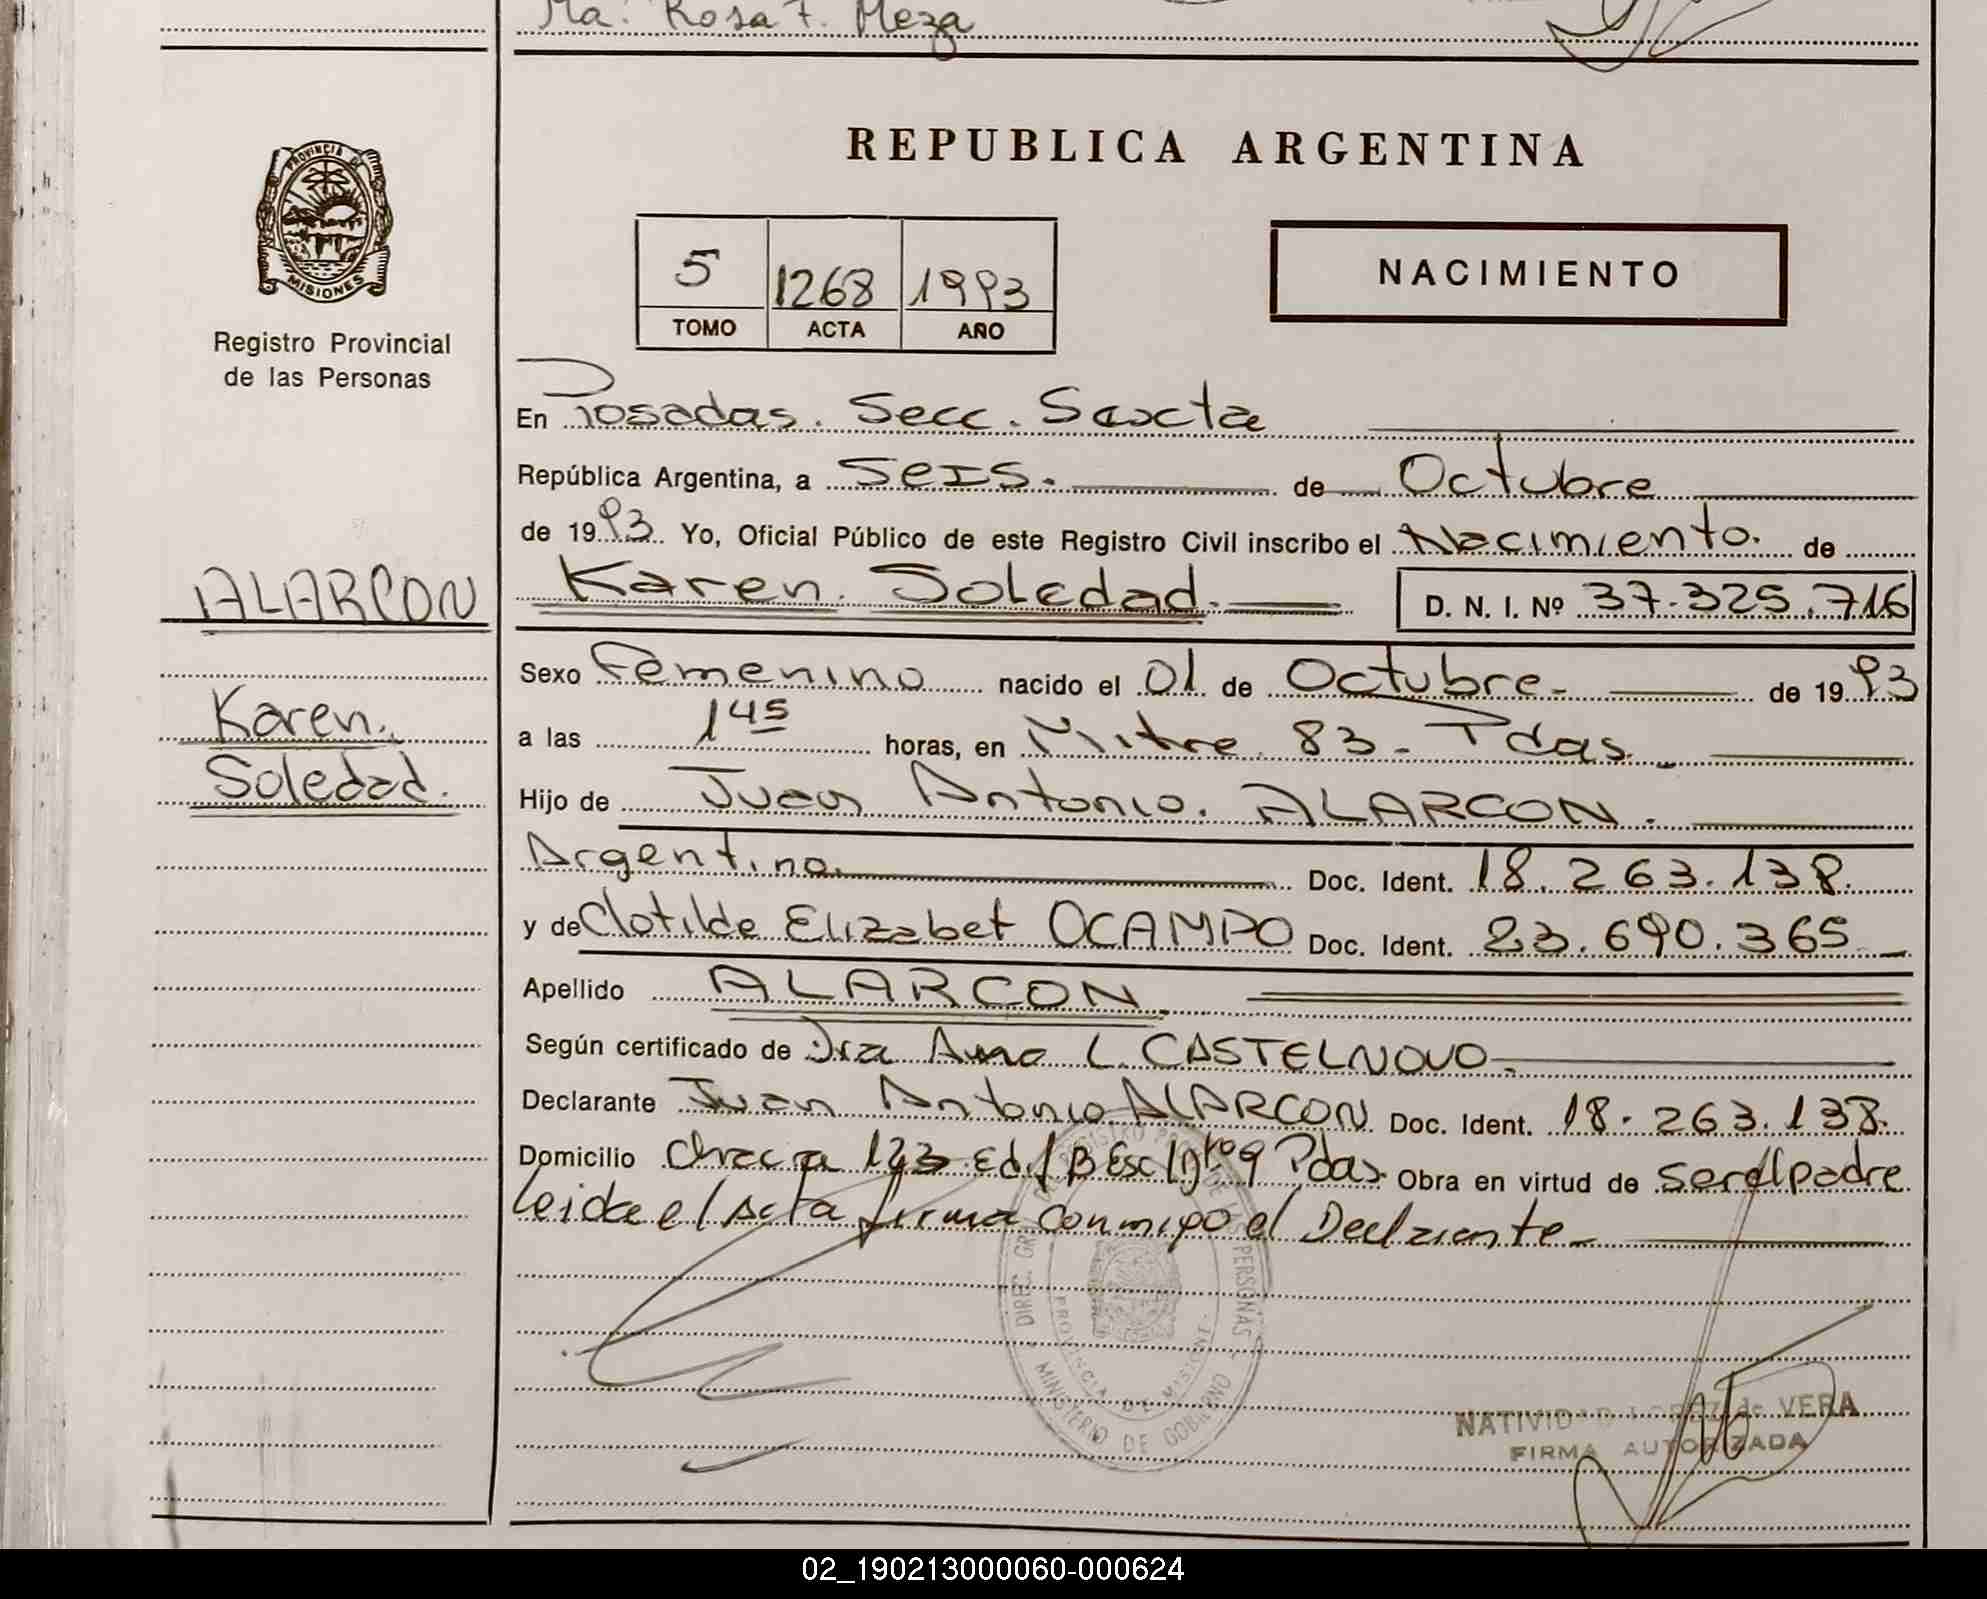 Ma. Rosa F. Meza
PROVINCIA DE
MISIONES
Registro Provincial
de las Personas
ALARCON
Karen.
Soledad.
REPUBLICA ARGENTINA
5 1268 1993
TOMO ACTA AÑO
NACIMIENTO
En Posadas. Secc. Sexta
República Argentina, a SeIS. de Octubre
de 1993. Yo, Oficial Público de este Registro Civil inscribo el Nacimiento. de
Karen. Soledad. D. N. I. Nº 37.325.716
Sexo Femenino nacido el 01 de Octubre. de 1993
a las 1 45 horas, en Mitre 83 - Pdas.
Hijo de Juan Antonio. ALARCON.
Argentino. Doc. Ident. 18.263.138.
y de Clotilde Elizabet OCAMPO Doc. Ident. 23.690.365
Apellido ALARCON
Según certificado de Dra Ana L. CASTELNOVO
Declarante Juan Antonio ALARCON Doc. Ident. 18.263.138.
Domicilio Chacra 123 Ed. Pdas. Obra en virtud de ser el padre
leida el Acta firma conmigo el Declarante
DIREC. GRAL. DEL REGISTRO PROV. DE LAS PERSONAS
PROVINCIA DE MISIONES
MINISTERIO DE GOBIERNO
NATIVIDAD LOPEZ de VERA
FIRMA AUTORIZADA
02_190213000060-000624